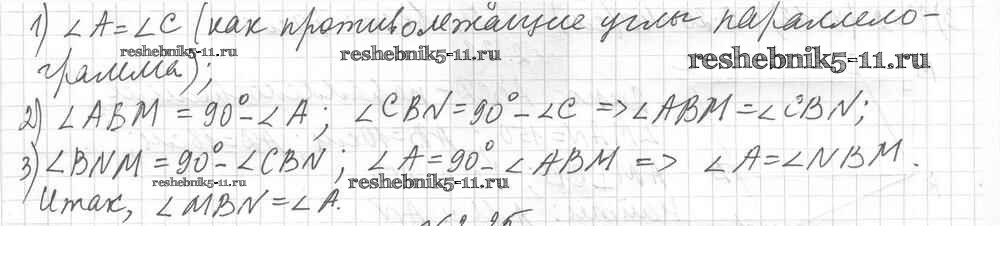 1) ∠A = ∠C (как противолежащие углы параллело-
reshebnik5-11.ru
reshebnik5-11.ru
reshebnik5-11.ru
грамма);
2) ∠ABM = 90° - ∠A; ∠CBN = 90° - ∠C => ∠ABM = ∠CBN;
3) ∠BNM = 90° - ∠CBN; ∠A = 90° - ∠ABM => ∠A = ∠NBM.
reshebnik5-11.ru
reshebnik5-11.ru
Итак, ∠MBN = ∠A.